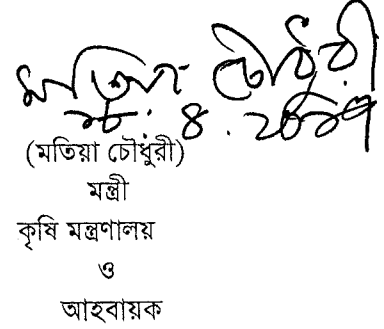 মতিয়া চৌধুরী
(মতিয়া চৌধুরী)
মন্ত্রী
কৃষি মন্ত্রণালয়
ও
আহবায়ক